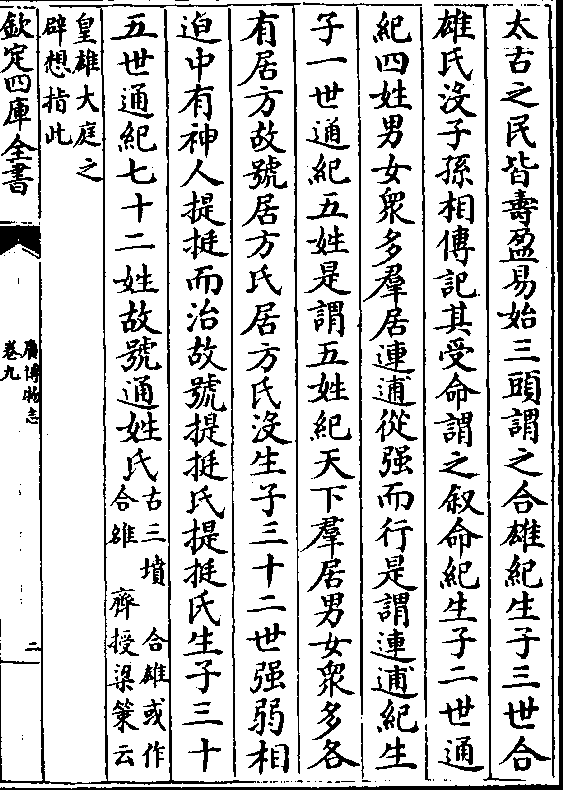 太古之民皆壽盈易始三頭謂之合雄紀生子三世合
雄氏沒子孫相傳記其受命謂之叙命紀生子二世通
紀四姓男女衆多羣居連逋從强而行是謂連逋紀生
子一世通紀五姓是謂五姓紀天下羣居男女衆多各
有居方故號居方氏居方氏沒生子三十二世强弱相
迫中有神人提挺而治故號提挺氏提挺氏生子三十
五世通紀七十二姓故號通姓氏
古三墳 合雄或作
合雒 齊授梁策云
皇雄大庭之
辟想指此
欽定四庫全書
廣博物志
卷九
二